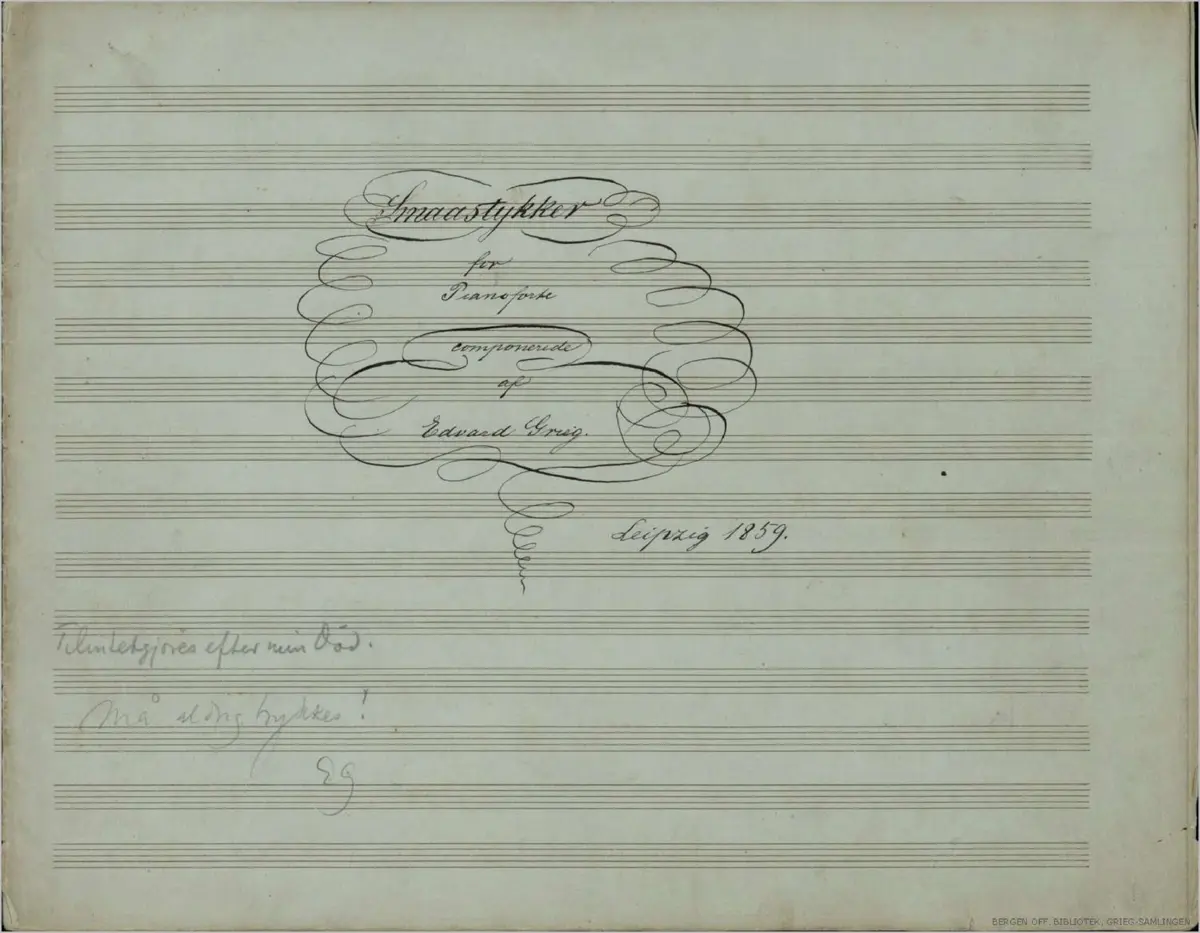 Smaastykker
for
Pianoforte
componerede
af
Edvard Grieg.
Leipzig 1859.
Tilintetgjöres efter min Död.
Må aldrig trykkes!
EG
BERGEN OFF. BIBLIOTEK, GRIEG-SAMLINGEN